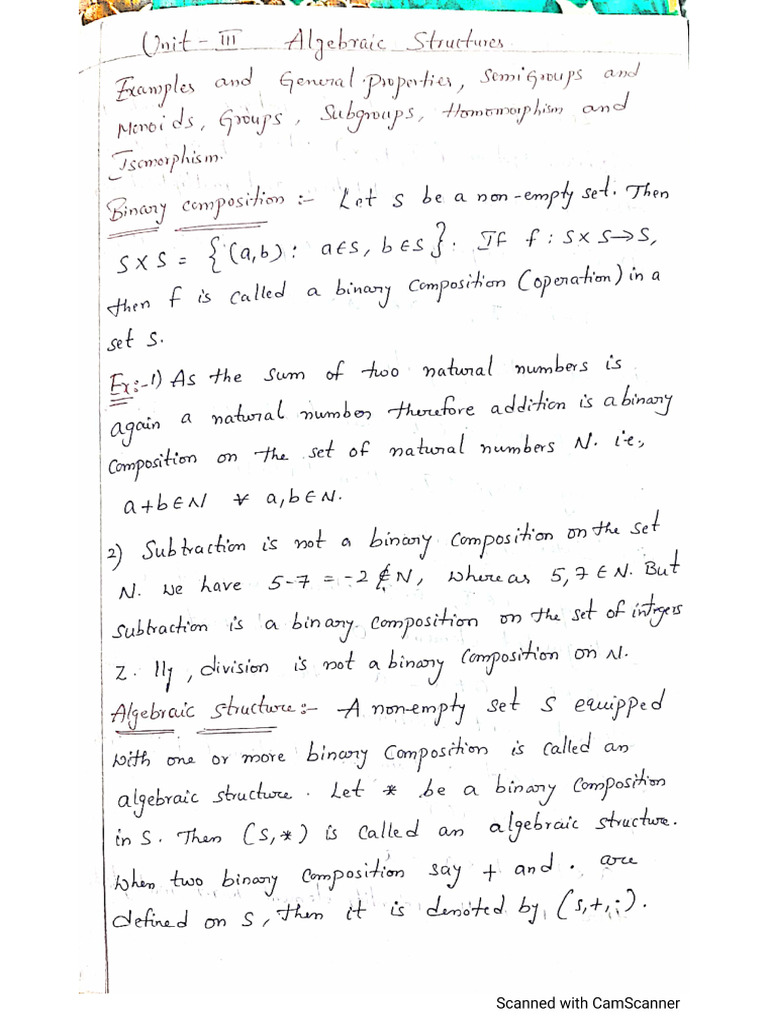 Unit - III Algebraic Structures
Examples and General Properties, Semi Groups and
Monoids, Groups, Subgroups, Homomorphism and
Isomorphism.
Binary composition :- Let S be a non-empty set. Then
S X S = {(a,b) : a∈S, b∈S}. If f : S X S→S,
then f is called a binary composition (operation) in a
set S.
Ex:-1) As the sum of two natural numbers is
again a natural number therefore addition is a binary
composition on the set of natural numbers N. i.e.,
a+b∈N ∀ a,b∈N.
2) Subtraction is not a binary composition on the set
N. We have 5-7 = -2 ∉ N, whereas 5,7 ∈ N. But
subtraction is a binary composition on the set of integers
Z. lly, division is not a binary composition on N.
Algebraic structure:- A non-empty set S equipped
with one or more binary composition is called an
algebraic structure. Let * be a binary composition
in S. Then (S,*) is called an algebraic structure.
When two binary composition say + and . are
defined on S, then it is denoted by (S,+,.).
Scanned with CamScanner